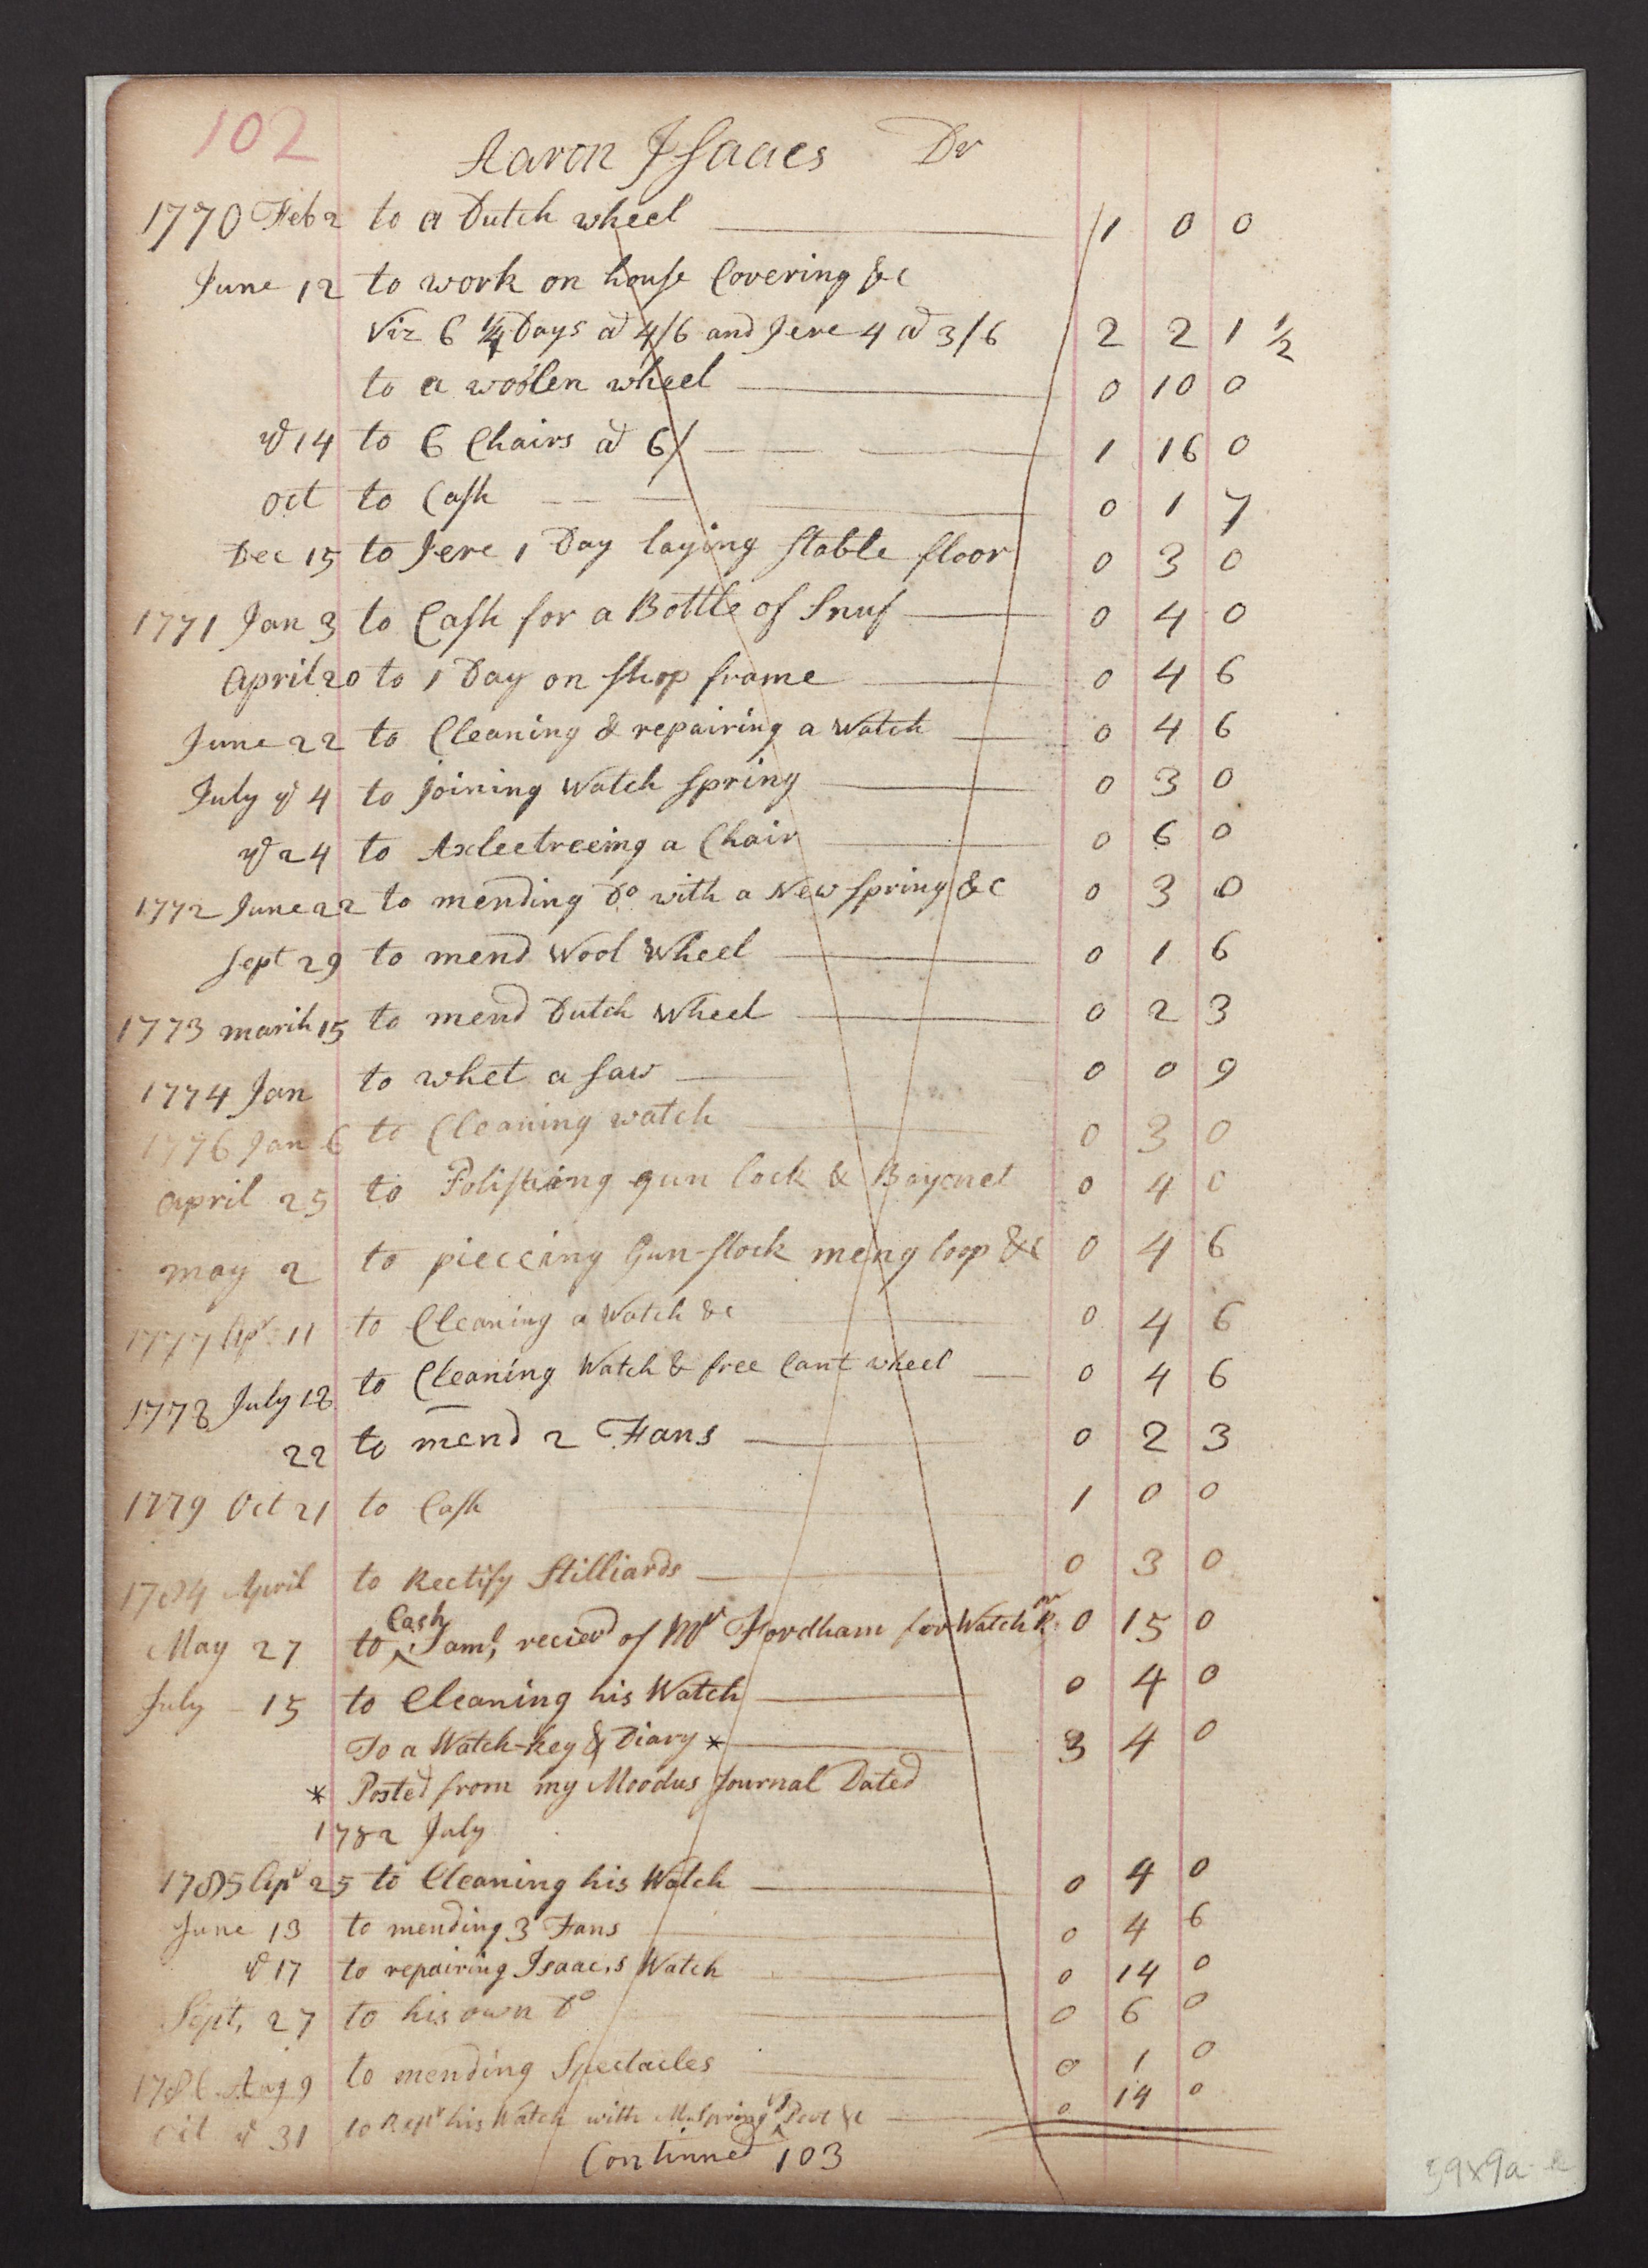 102
Aaron Isaacs Dr
1770 Feb 2 to a Dutch wheel 1 0 0
June 12 to work on house Covering &c
Viz 6 1/4 Days @ 4/6 and Jere 4 @ 3/6 2 2 1 1/2
to a woolen wheel 0 10 0
ye 14 to 6 Chairs @ 6/ 1 16 0
oct to Cash 0 1 7
Dec 15 to Jere 1 Day laying stable floor 0 3 0
1771 Jan 3 to Cash for a Bottle of Snuf 0 4 0
April 20 to 1 Day on shop frame 0 4 6
June 22 to Cleaning & repairing a Watch 0 4 6
July ye 4 to Joining Watch spring 0 3 0
ye 24 to Axleetreeing a Chair 0 6 0
1772 June 22 to mending Do with a New spring &c 0 3 0
Sept 29 to mend Wool Wheel 0 1 6
1773 march 15 to mend Dutch Wheel 0 2 3
1774 Jan to whet a saw 0 0 9
1776 Jan 6 to Cleaning watch 0 3 0
april 25 to Polishing gun lock & Bayonet 0 4 0
may 2 to pieceing Gun-stock meng loop &c 0 4 6
1777 Apr 11 to Cleaning a Watch &c 0 4 6
1778 July 18 to Cleaning Watch & free Cant wheel 0 4 6
22 to mend 2 Fans 0 2 3
1779 Oct 21 to Cash 1 0 0
1784 April to Rectify Stilliards 0 3 0
May 27 to Cash Saml, recievd of Mr Fordham for Watch 0 15 0
July - 15 to Cleaning his Watch 0 4 0
To a Watch-key & Diary * 3 4 0
* Posted from my Moodus Journal Dated
1782 July
1785 Apr 25 to Cleaning his Watch 0 4 0
June 13 to mending 3 Fans 0 4 6
ye 17 to repairing Isaac,s Watch 0 14 0
Sept, 27 to his own Do 0 6 0
1786 Aug 9 to mending Spectacles 0 1 0
oct ye 31 to Repr his Watch with M.Spring &c 0 14 0
Continued 103
59x9a